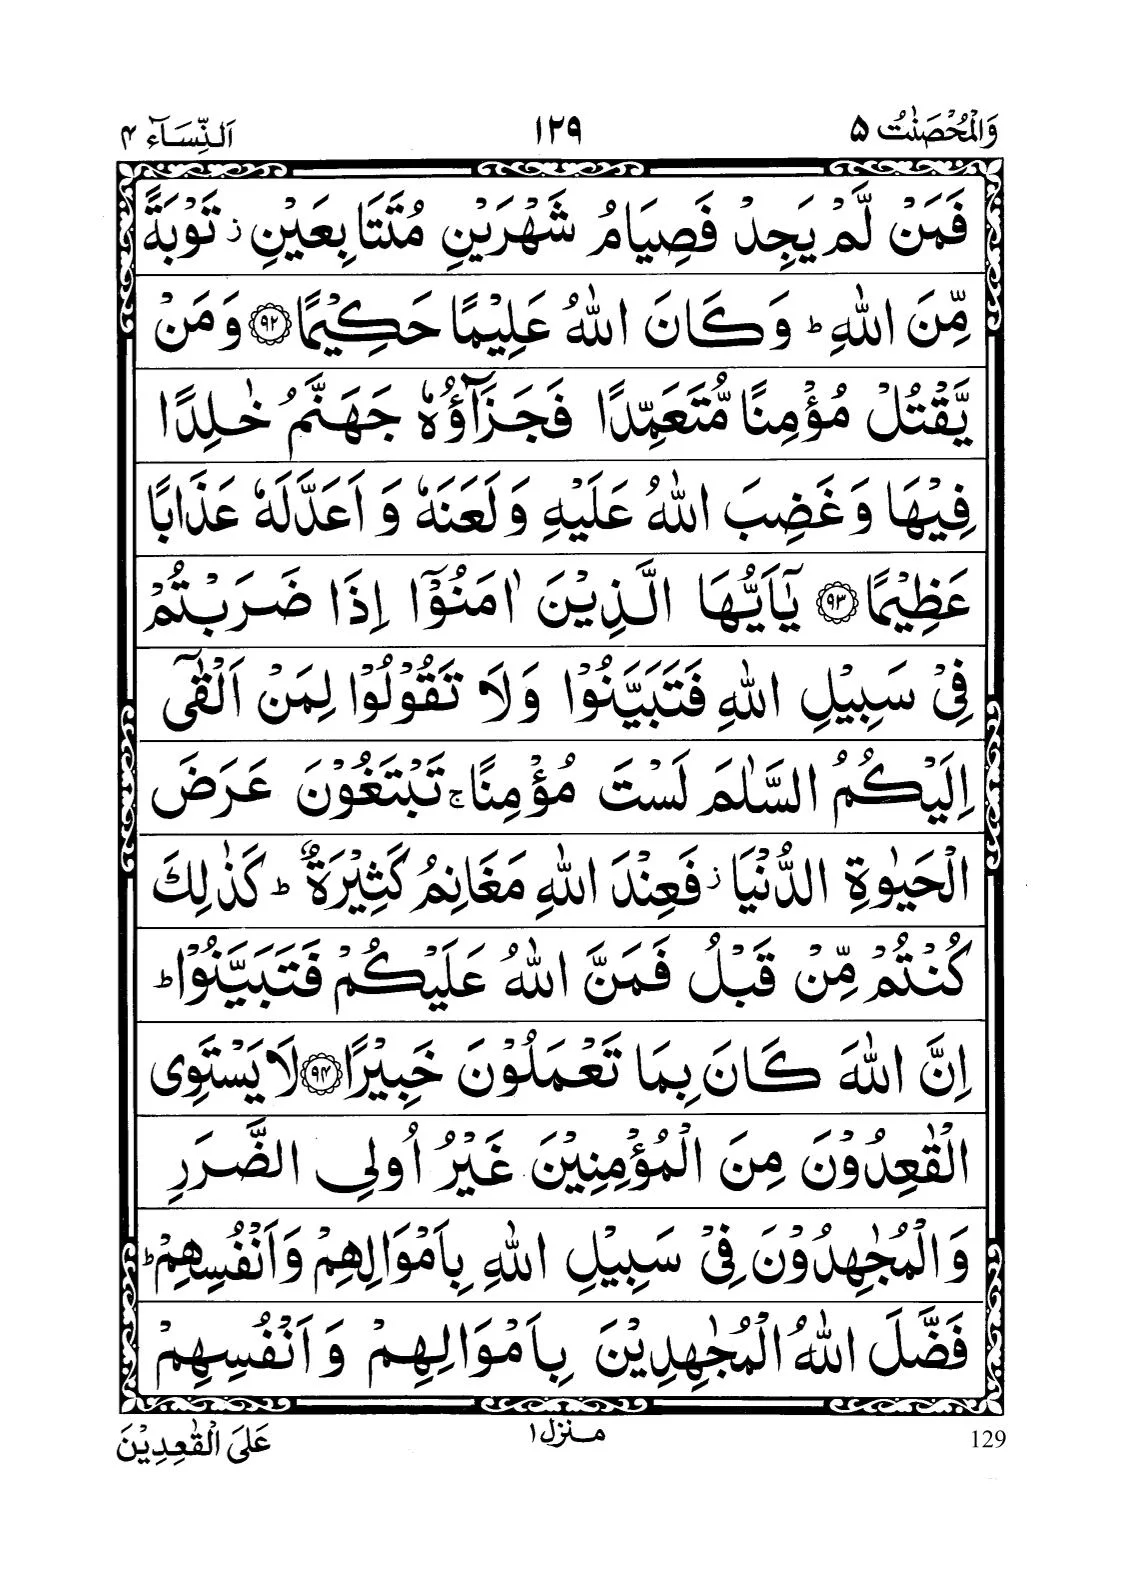 وَالْمُحْصَنٰتُ ۵ ۱۲۹ اَلنِّسَآء ۴
فَمَنْ لَّمْ يَجِدْ فَصِيَامُ شَهْرَيْنِ مُتَتَابِعَيْنِ ز تَوْبَةً
مِّنَ اللّٰهِ ؕ وَكَانَ اللّٰهُ عَلِيْمًا حَكِيْمًا ۹۲ وَمَنْ
يَّقْتُلْ مُؤْمِنًا مُّتَعَمِّدًا فَجَزَآؤُهٗ جَهَنَّمُ خٰلِدًا
فِيْهَا وَغَضِبَ اللّٰهُ عَلَيْهِ وَلَعَنَهٗ وَاَعَدَّلَهٗ عَذَابًا
عَظِيْمًا ۹۳ يٰۤاَيُّهَا الَّذِيْنَ اٰمَنُوْۤا اِذَا ضَرَبْتُمْ
فِيْ سَبِيْلِ اللّٰهِ فَتَبَيَّنُوْا وَلَا تَقُوْلُوْا لِمَنْ اَلْقٰۤى
اِلَيْكُمُ السَّلٰمَ لَسْتَ مُؤْمِنًا ۚ تَبْتَغُوْنَ عَرَضَ
الْحَيٰوةِ الدُّنْيَا ز فَعِنْدَ اللّٰهِ مَغَانِمُ كَثِيْرَةٌ ؕ كَذٰلِكَ
كُنْتُمْ مِّنْ قَبْلُ فَمَنَّ اللّٰهُ عَلَيْكُمْ فَتَبَيَّنُوْا ؕ
اِنَّ اللّٰهَ كَانَ بِمَا تَعْمَلُوْنَ خَبِيْرًا ۹۴ لَا يَسْتَوِى
الْقٰعِدُوْنَ مِنَ الْمُؤْمِنِيْنَ غَيْرُ اُولِى الضَّرَرِ
وَالْمُجٰهِدُوْنَ فِيْ سَبِيْلِ اللّٰهِ بِاَمْوَالِهِمْ وَاَنْفُسِهِمْ ؕ
فَضَّلَ اللّٰهُ الْمُجٰهِدِيْنَ بِاَمْوَالِهِمْ وَاَنْفُسِهِمْ
129 منزل ۱ عَلَى الْقٰعِدِيْنَ